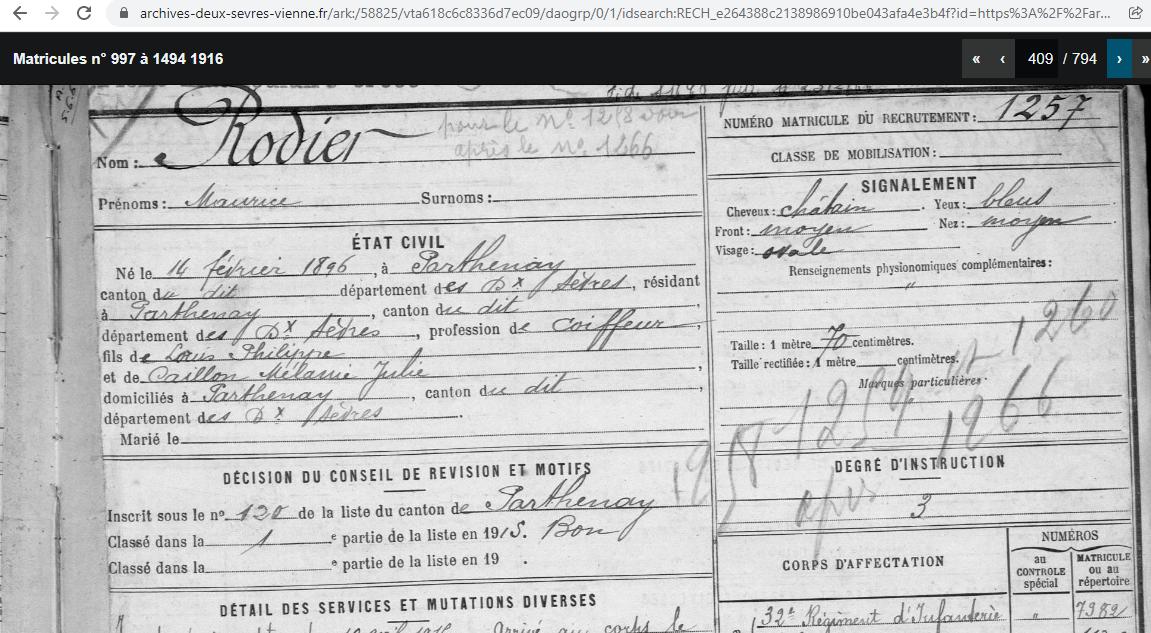 archives-deux-sevres-vienne.fr/ark:/58825/vta618c6c8336d7ec09/daogrp/0/1/idsearch:RECH_e264388c2138986910be043afa4e3b4f?id=https%3A%2F%2Far...
Matricules n° 997 à 1494 1916
« ‹ 409 / 794 › »
Nom : Rodier
pour le N° 1258 voir
après le N° 1266
Prénoms : Maurice Surnoms :
ÉTAT CIVIL
Né le 14 février 1896, à Parthenay
canton du dit département des Dx Sèvres, résidant
à Parthenay, canton du dit
département des Dx Sèvres, profession de coiffeur,
fils de Louis Philippe
et de Caillon Mélanie Julie,
domiciliés à Parthenay, canton du dit,
département des Dx Sèvres.
Marié le
DÉCISION DU CONSEIL DE REVISION ET MOTIFS
Inscrit sous le n° 120 de la liste du canton de Parthenay
Classé dans la 1 e partie de la liste en 1915. Bon
Classé dans la e partie de la liste en 19 .
DÉTAIL DES SERVICES ET MUTATIONS DIVERSES
Arrivé au corps le
NUMÉRO MATRICULE DU RECRUTEMENT : 1257
CLASSE DE MOBILISATION :
SIGNALEMENT
Cheveux : châtain. Yeux : bleus
Front : moyen Nez : moyen
Visage : ovale
Renseignements physionomiques complémentaires :
"
Taille : 1 mètre 70 centimètres.
Taille rectifiée : 1 mètre centimètres.
Marques particulières.
1260
1266
DEGRÉ D'INSTRUCTION
3
CORPS D'AFFECTATION
NUMÉROS
au CONTROLE spécial
MATRICULE ou au répertoire
32e Régiment d'Infanterie " 7382